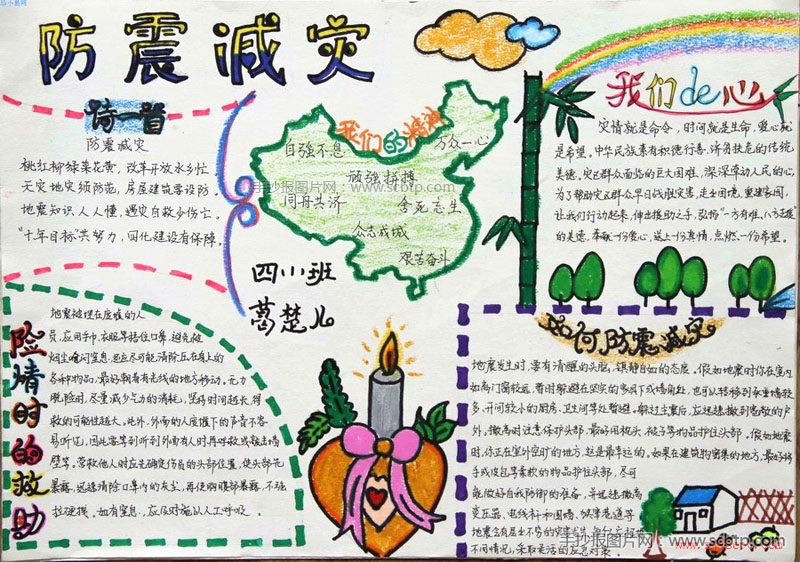 防震减灾
诗一首
防震减灾
桃红柳绿菜花黄，改革开放水乡忙
天灾地灾须防范，房屋建筑要设防
地震知识人人懂，遇灾自救少伤亡。
“十年目标”共努力，四化建设有保障。
我们的精神
自强不息
万众一心
顽强拼搏
同舟共济
舍死忘生
众志成城
艰苦奋斗
手抄报图片网：www.scbtp.com
四(1)班
葛楚儿
我们de心
灾情就是命令，时间就是生命，爱心就
是希望。中华民族素有积德行善、济负扶危的传统
美德，灾区群众面临的巨大困难，深深牵动人民的心，
为了帮助灾区群众早日战胜灾害，走出困境，重建家园，
让我们行动起来，伸出援助之手，弘扬“一方有难，八方支援”
的美德，奉献一份爱心，送上一份真情，点燃一份希望。
险情时的救助
地震被埋在废墟的人
员，应用手巾、衣服等捂住口鼻，避免被
烟尘呛闷窒息，还应尽可能清除压在身上的
各种物品，最好朝着有光线的地方移动。无力
脱险时，尽量减少气力的消耗，坚持时间越长，得
救的可能性越大。此外，外面的人废墟下的声音不容
易听证，因此要等到听到外面有人时再呼救或敲击墙
壁等。营救他人时应先确定伤员的头部位置，使头部先
暴露，迅速清除口鼻内的灰尘，再使胸腹部暴露，不强
拉硬拽。如有窒息，应及时施以人工呼吸。
如何防震减灾
地震发生时，要有清醒的头脑，镇静自如的态度。假如地震时你在室内
如离门窗较远，暂时躲避在坚实的家具下或墙角处，也可以转移到承重墙较
多、开间较小的厨房、卫生间等处暂避。躲过主震后，应迅速撤到宽敞的户
外。撤离时注意保护头部，最好用枕头、被子等物品护住头部。假如地震
时，你正在室外空旷的地方，这是最幸运的。如果在建筑物密集的地方，最好将
手或皮包等柔软的物品护住头部，尽可
能做好自我防御的准备，并迅速撤离
变压器，电线杆和围墙、狭窄巷道等
手抄报图片网：www.scbtp.com
不同情况，采取灵活的应急对策。